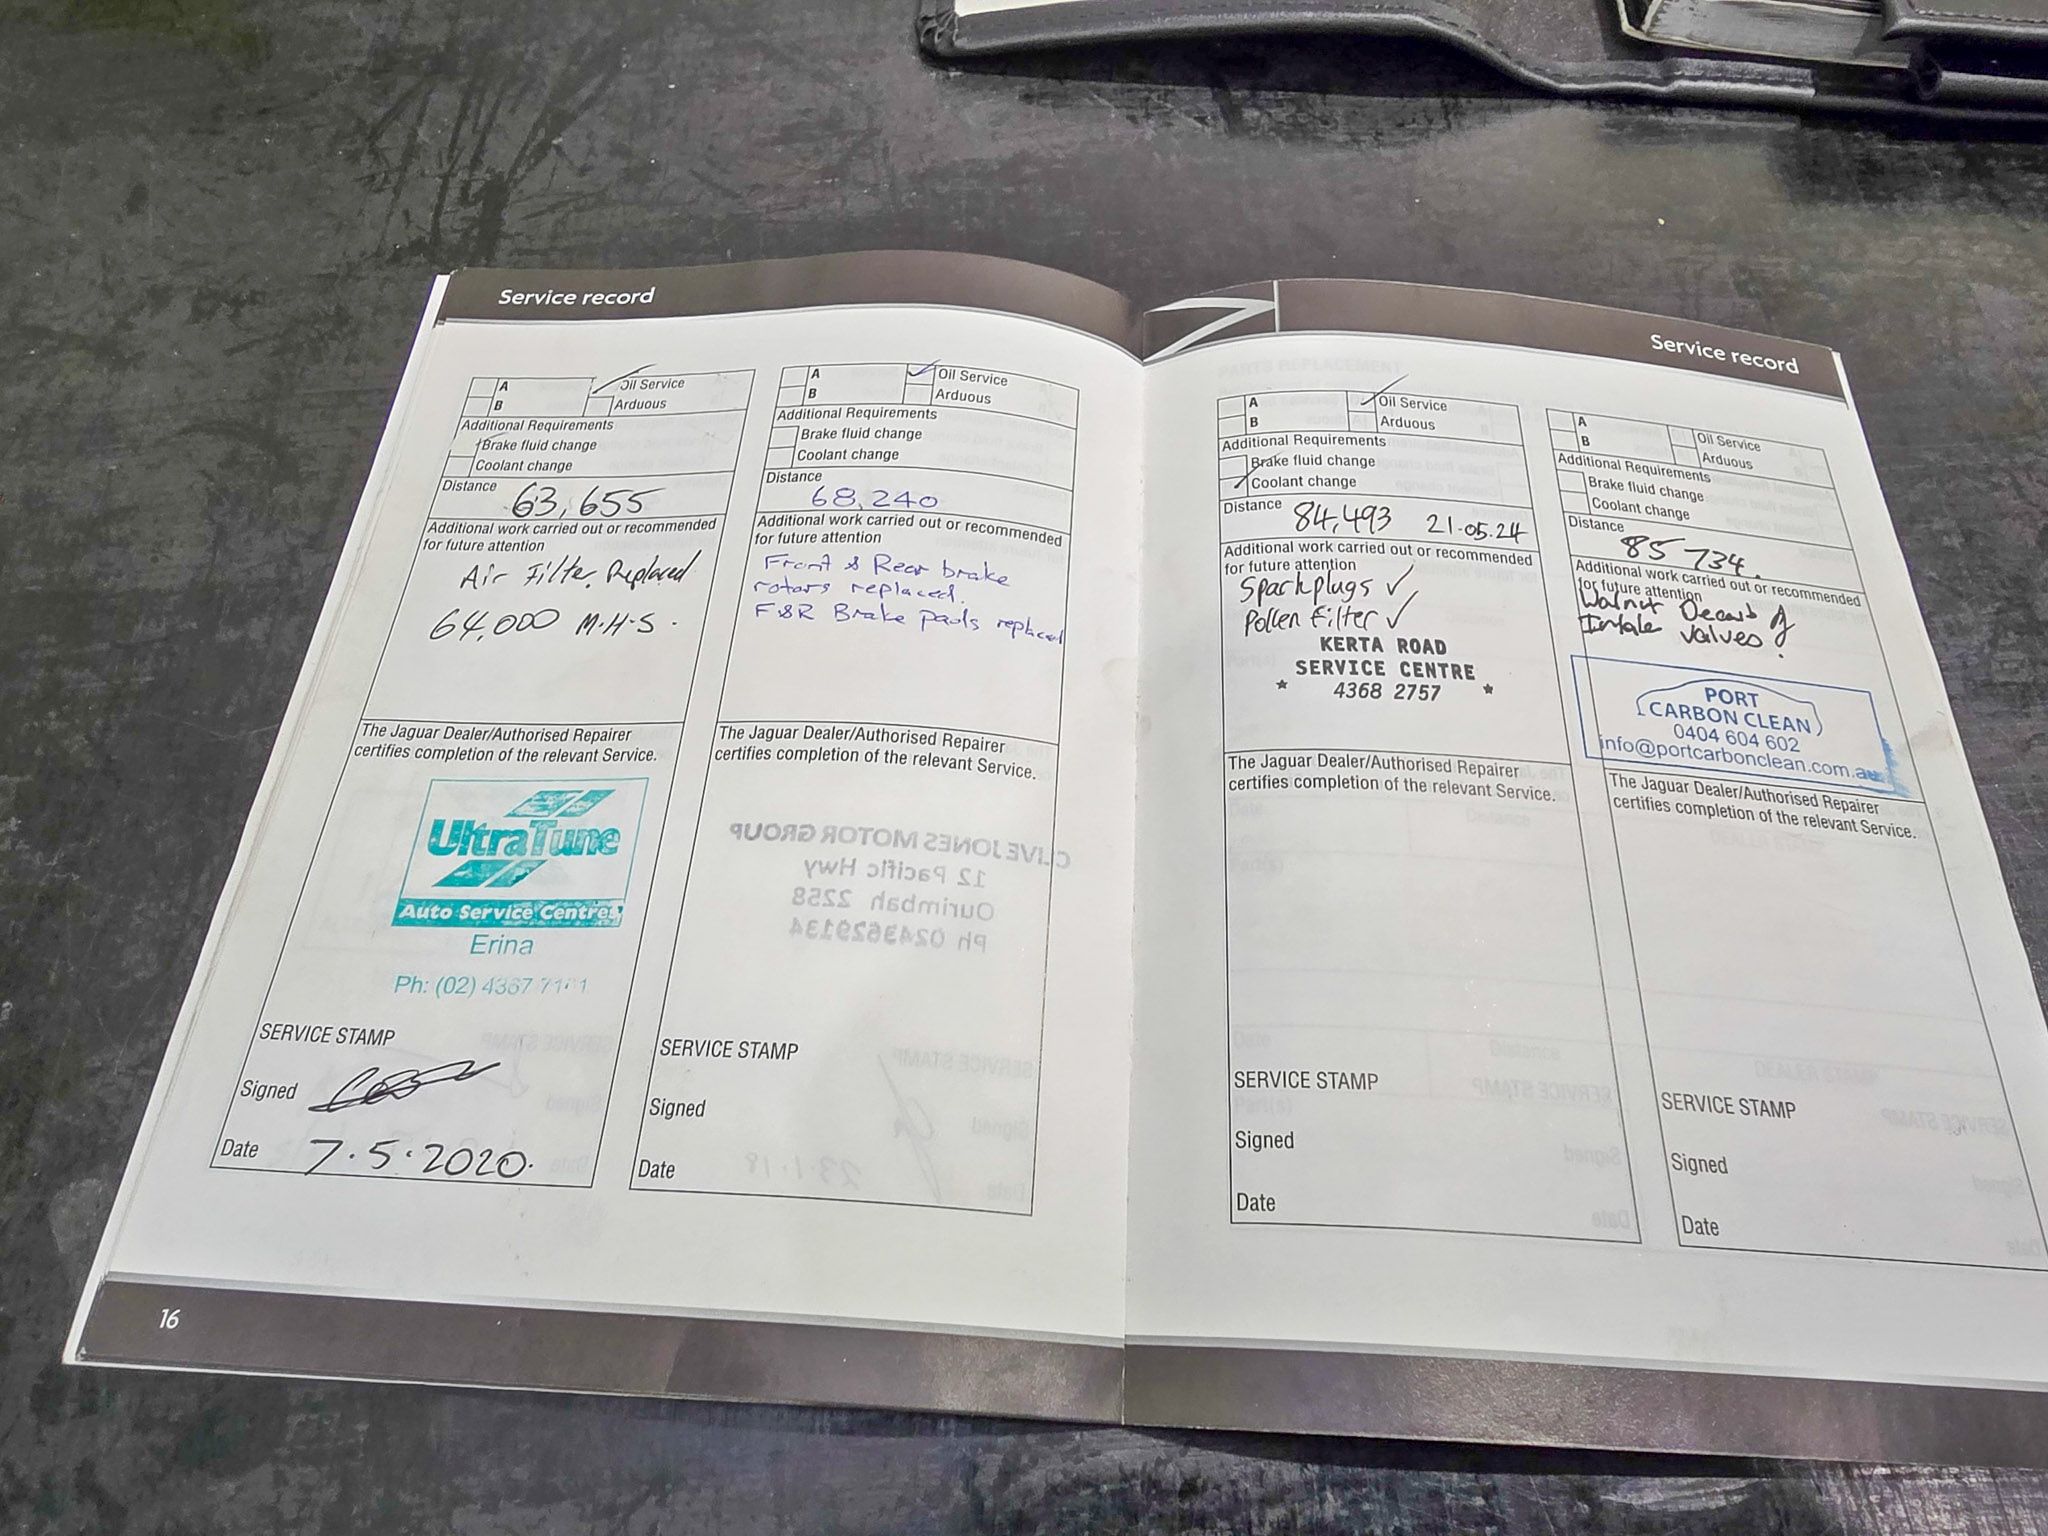 Service record
A
Oil Service
B
Arduous
Additional Requirements
Brake fluid change
Coolant change
Distance 63,655
Additional work carried out or recommended
for future attention
Air Filter Replaced
64,000 M.H.S.
The Jaguar Dealer/Authorised Repairer
certifies completion of the relevant Service.
UltraTune
Auto Service Centres
Erina
Ph: (02) 4367
SERVICE STAMP
Signed
Date 7.5.2020.
A
Oil Service
B
Arduous
Additional Requirements
Brake fluid change
Coolant change
Distance
68,240
Additional work carried out or recommended
for future attention
Front & Rear brake
rotors replaced.
F&R Brake pads replaced
The Jaguar Dealer/Authorised Repairer
certifies completion of the relevant Service.
CLIVE JONES MOTOR GROUP
12 Pacific Hwy
Ourimbah 2258
Ph 0243629134
SERVICE STAMP
Signed
Date
16
Service record
A
Oil Service
B
Arduous
Additional Requirements
Brake fluid change
Coolant change
Distance 84,493 21.05.24
Additional work carried out or recommended
for future attention
Sparkplugs ✓
Pollen Filter ✓
KERTA ROAD
SERVICE CENTRE
* 4368 2757 *
The Jaguar Dealer/Authorised Repairer
certifies completion of the relevant Service.
SERVICE STAMP
Signed
Date
A
Oil Service
B
Arduous
Additional Requirements
Brake fluid change
Coolant change
Distance
85 734.
Additional work carried out or recommended
for future attention
Walnut Decarb of
Intake valves.
PORT
CARBON CLEAN
0404 604 602
info@portcarbonclean.com.au
The Jaguar Dealer/Authorised Repairer
certifies completion of the relevant Service.
SERVICE STAMP
Signed
Date